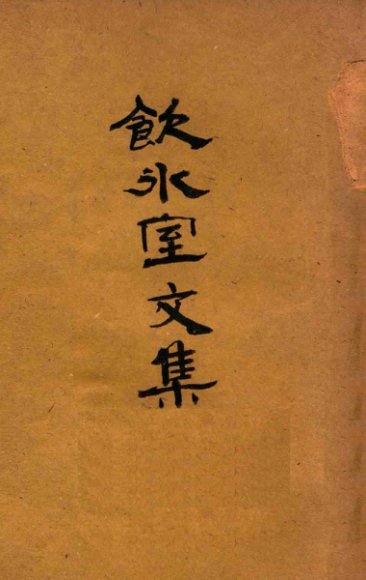 飲氷室文集